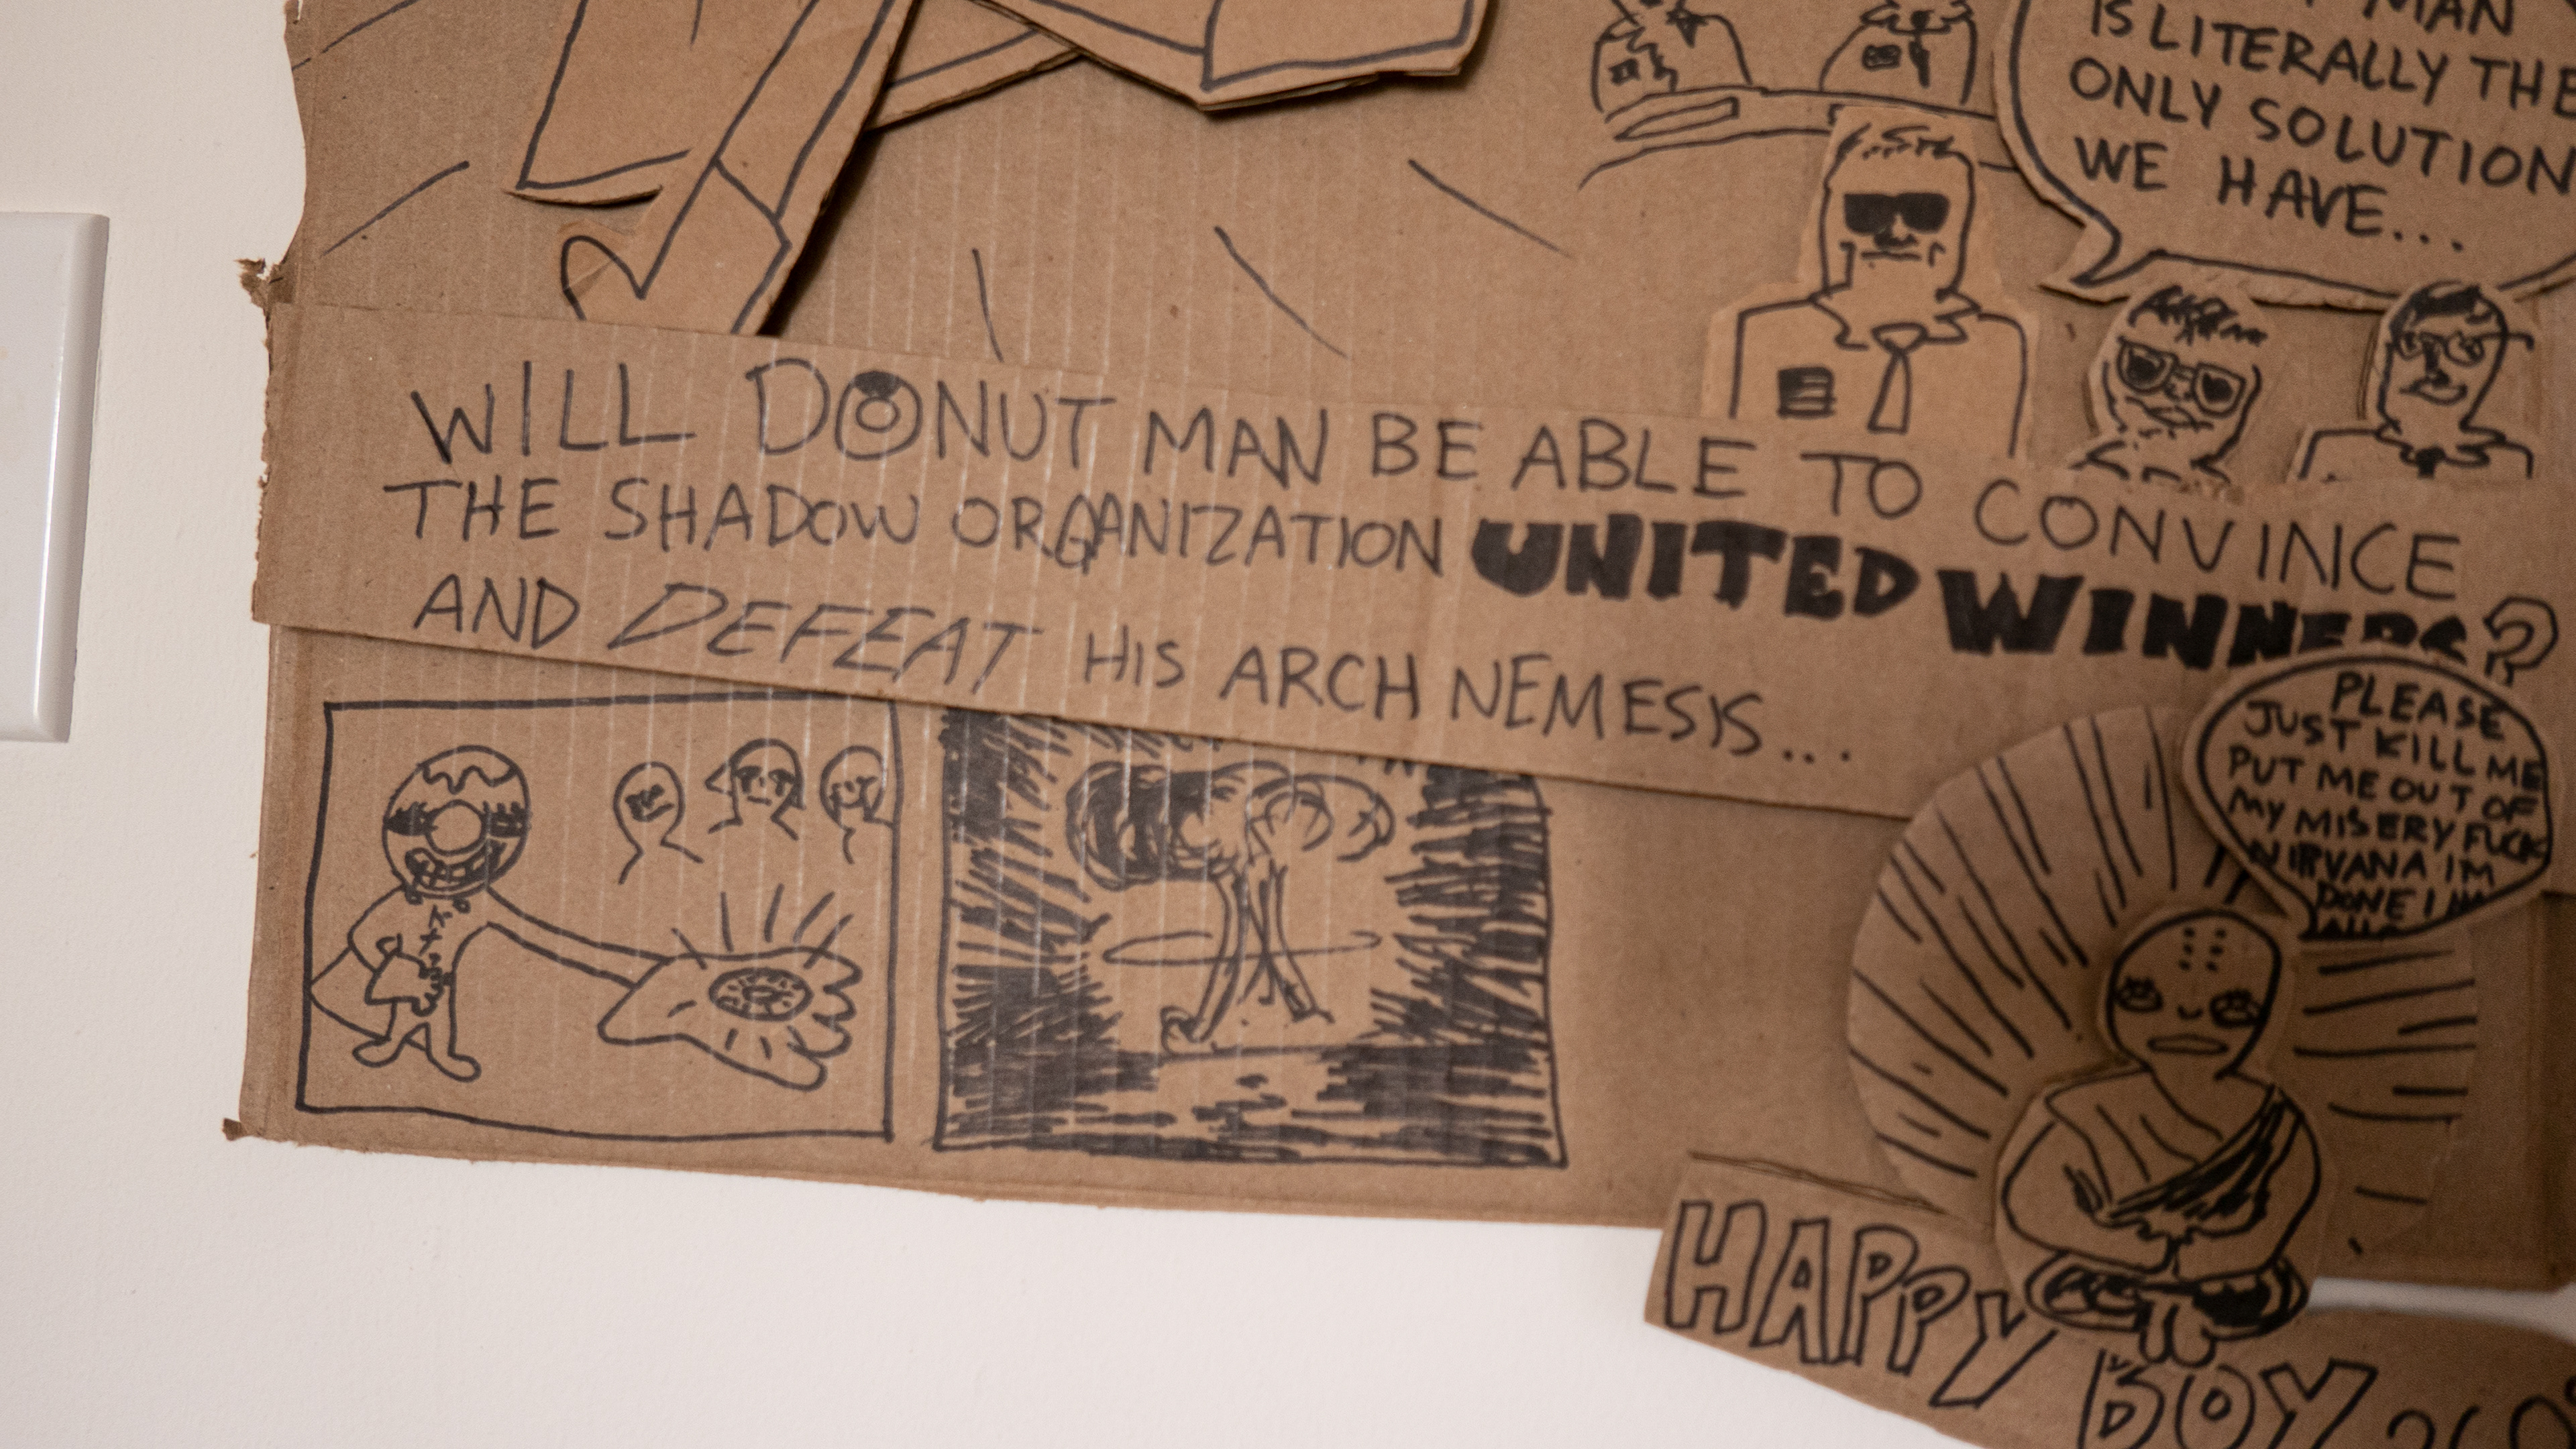 MAN
IS LITERALLY THE
ONLY SOLUTION
WE HAVE...
WILL DONUT MAN BE ABLE TO CONVINCE
THE SHADOW ORGANIZATION UNITED WINNERS?
AND DEFEAT HIS ARCH NEMESIS...
PLEASE
JUST KILL ME
PUT ME OUT OF
MY MISERY FUCK
NIRVANA IM
DONE I
HAPPY BOY